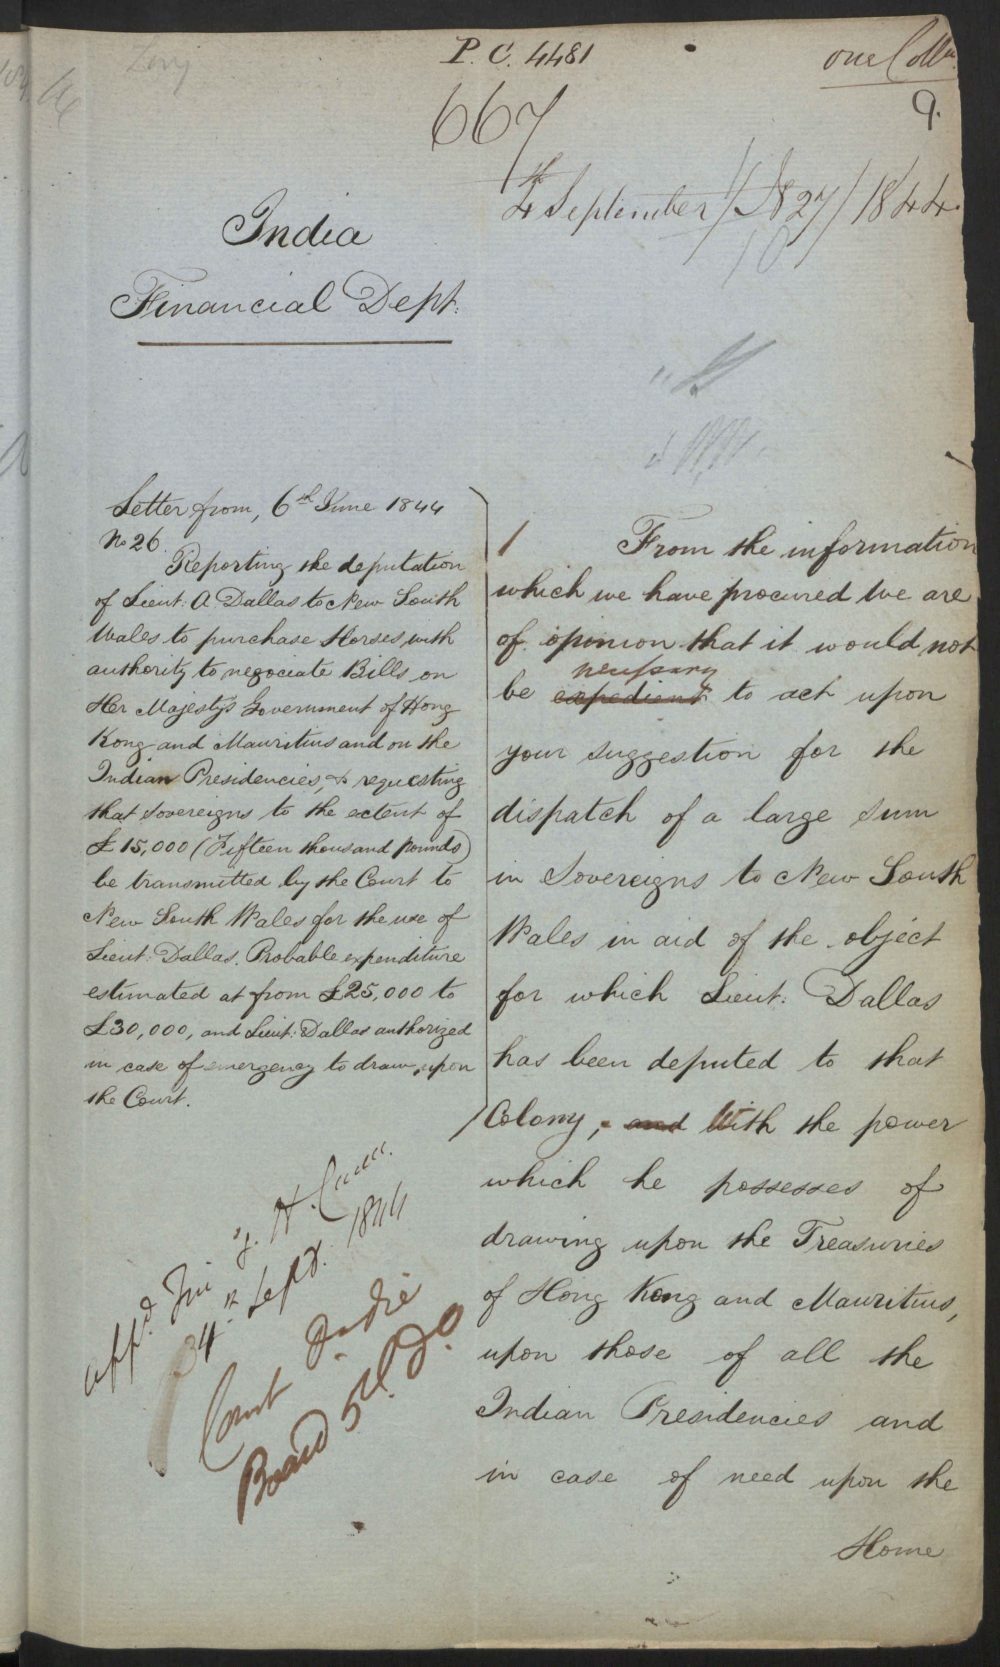 P. C. 4481
one Coll
9.
667
4th September / N 27 / 1844.
India
Financial Dept.
Letter from, 6th June 1844
No 26.
Reporting the deputation
of Lieut: A. Dallas to New South
Wales to purchase Horses with
authority to negociate Bills on
Her Majesty's Government of Hong
Kong and Mauritius and on the
Indian Presidencies, & requesting
that sovereigns to the extent of
£15,000 (Fifteen thousand pounds)
be transmitted by the Court to
New South Wales for the use of
Lieut: Dallas. Probable expenditure
estimated at from £25,000 to
£30,000, and Lieut: Dallas authorized
in case of emergency to draw upon
the Court.
1 From the information
which we have procured we are
of opinion that it would not
necessary
be expedient to act upon
your suggestion for the
dispatch of a large sum
in Sovereigns to New South
Wales in aid of the object
for which Lieut: Dallas
has been deputed to that
Colony, and With the power
which he possesses of
drawing upon the Treasuries
of Hong Kong and Mauritius,
upon those of all the
Indian Presidencies and
in case of need upon the
Home
appd. 
4 Sept. 1844
Court
Board 5th do